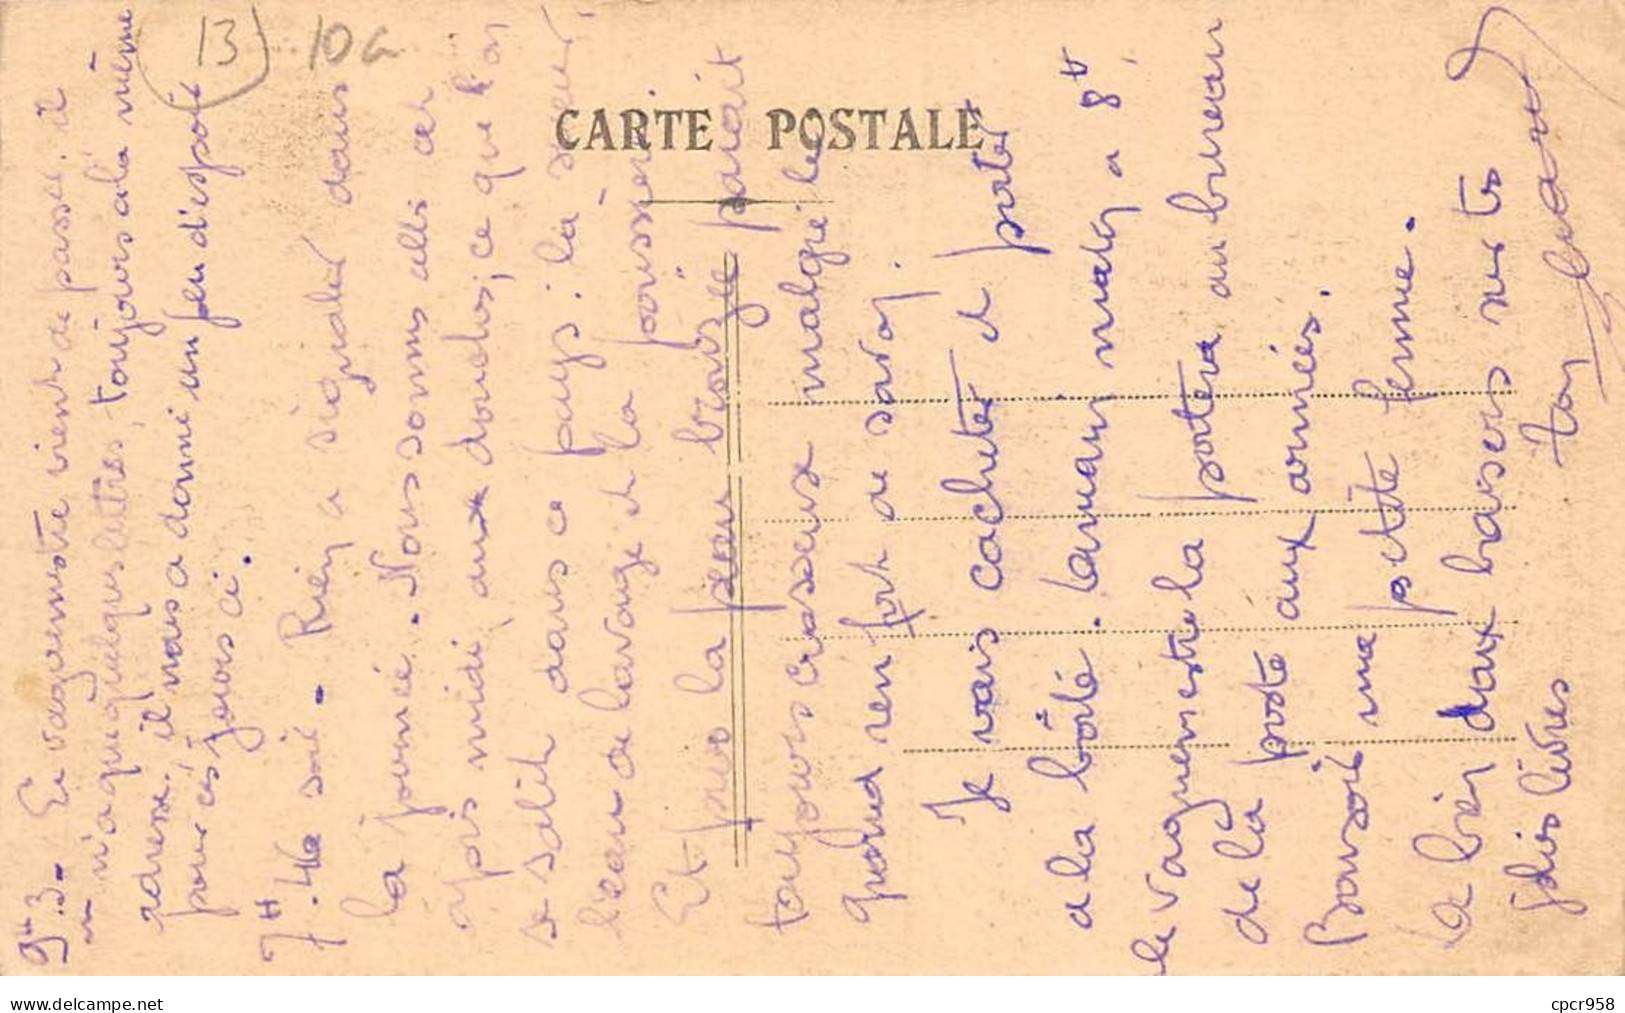 13 10a
CARTE POSTALE
9H 3. - Le vaguemestre vient de passer. il
m n'a que quelques lettres, toujours à la même
adresse. il nous a donné un peu d'espoir
pour ces jours ci.
7H.40 soir. - Rien a signaler dans
la journée. - Nous sommes allés cet
après midi, aux douches; ce que l'on
se salit dans ce pays: la sueur,
l'eau de lavage et la poussière.
Et puis la peau bronzée parait
toujours crasseuse malgré le
grand renfort de savon.
Je vais cacheter et porter
a la boîte. Demain matin a 8H,
le vaguemestre la portera au bureau
de la poste aux armées.
Bonsoir ma petite femme.
Ta bien doux baisers sur tes
jolies lèvres
Ton
www.delcampe.net
cpcr958